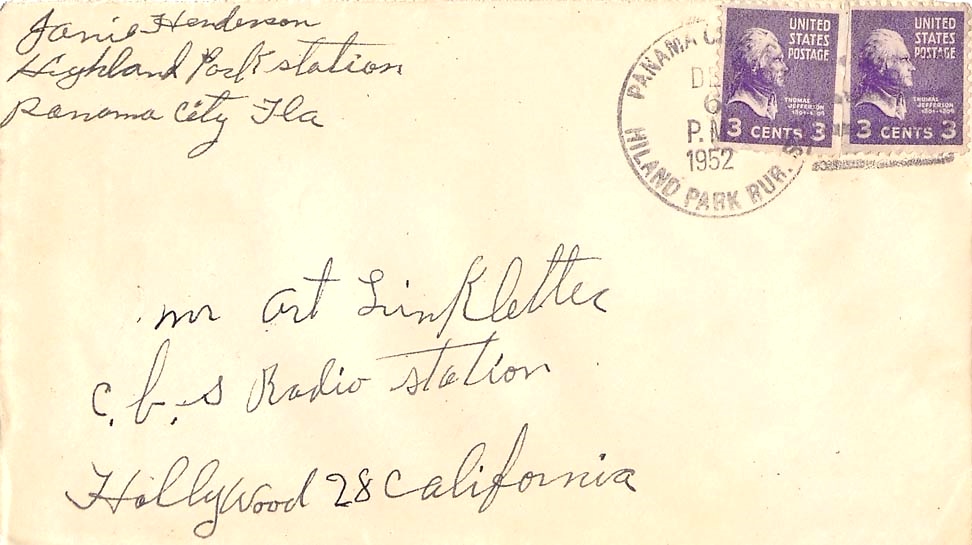 Janie Henderson
Highland Park station
Panama City Fla
PANAMA C
DE
6
P. M
1952
HILAND PARK RUR. S
UNITED
STATES
POSTAGE
THOMAS
JEFFERSON
3 CENTS 3
UNITED
STATES
POSTAGE
THOMAS
JEFFERSON
3 CENTS 3
mr art Linkletter
c. b. s Radio station
Hollywood 28 California